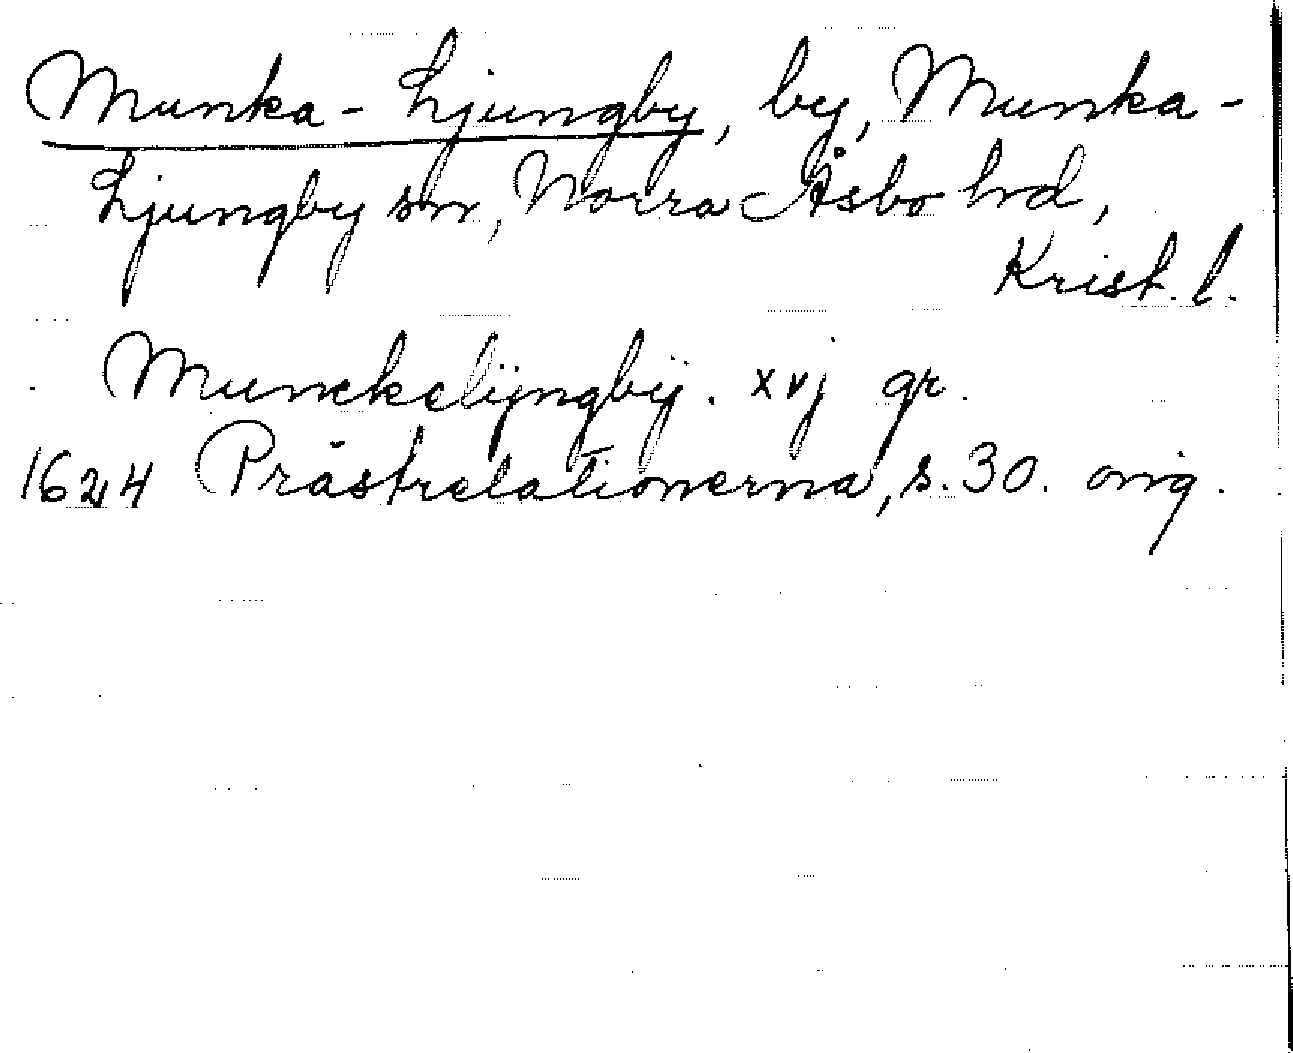 Munka-Ljungby, by, Munka-
Ljungby sn, Norra Åsbo hd,
Krist. l.
Munckelÿngbÿ. xvj gr.
1624 Prästrelationerna, s. 30. orig.